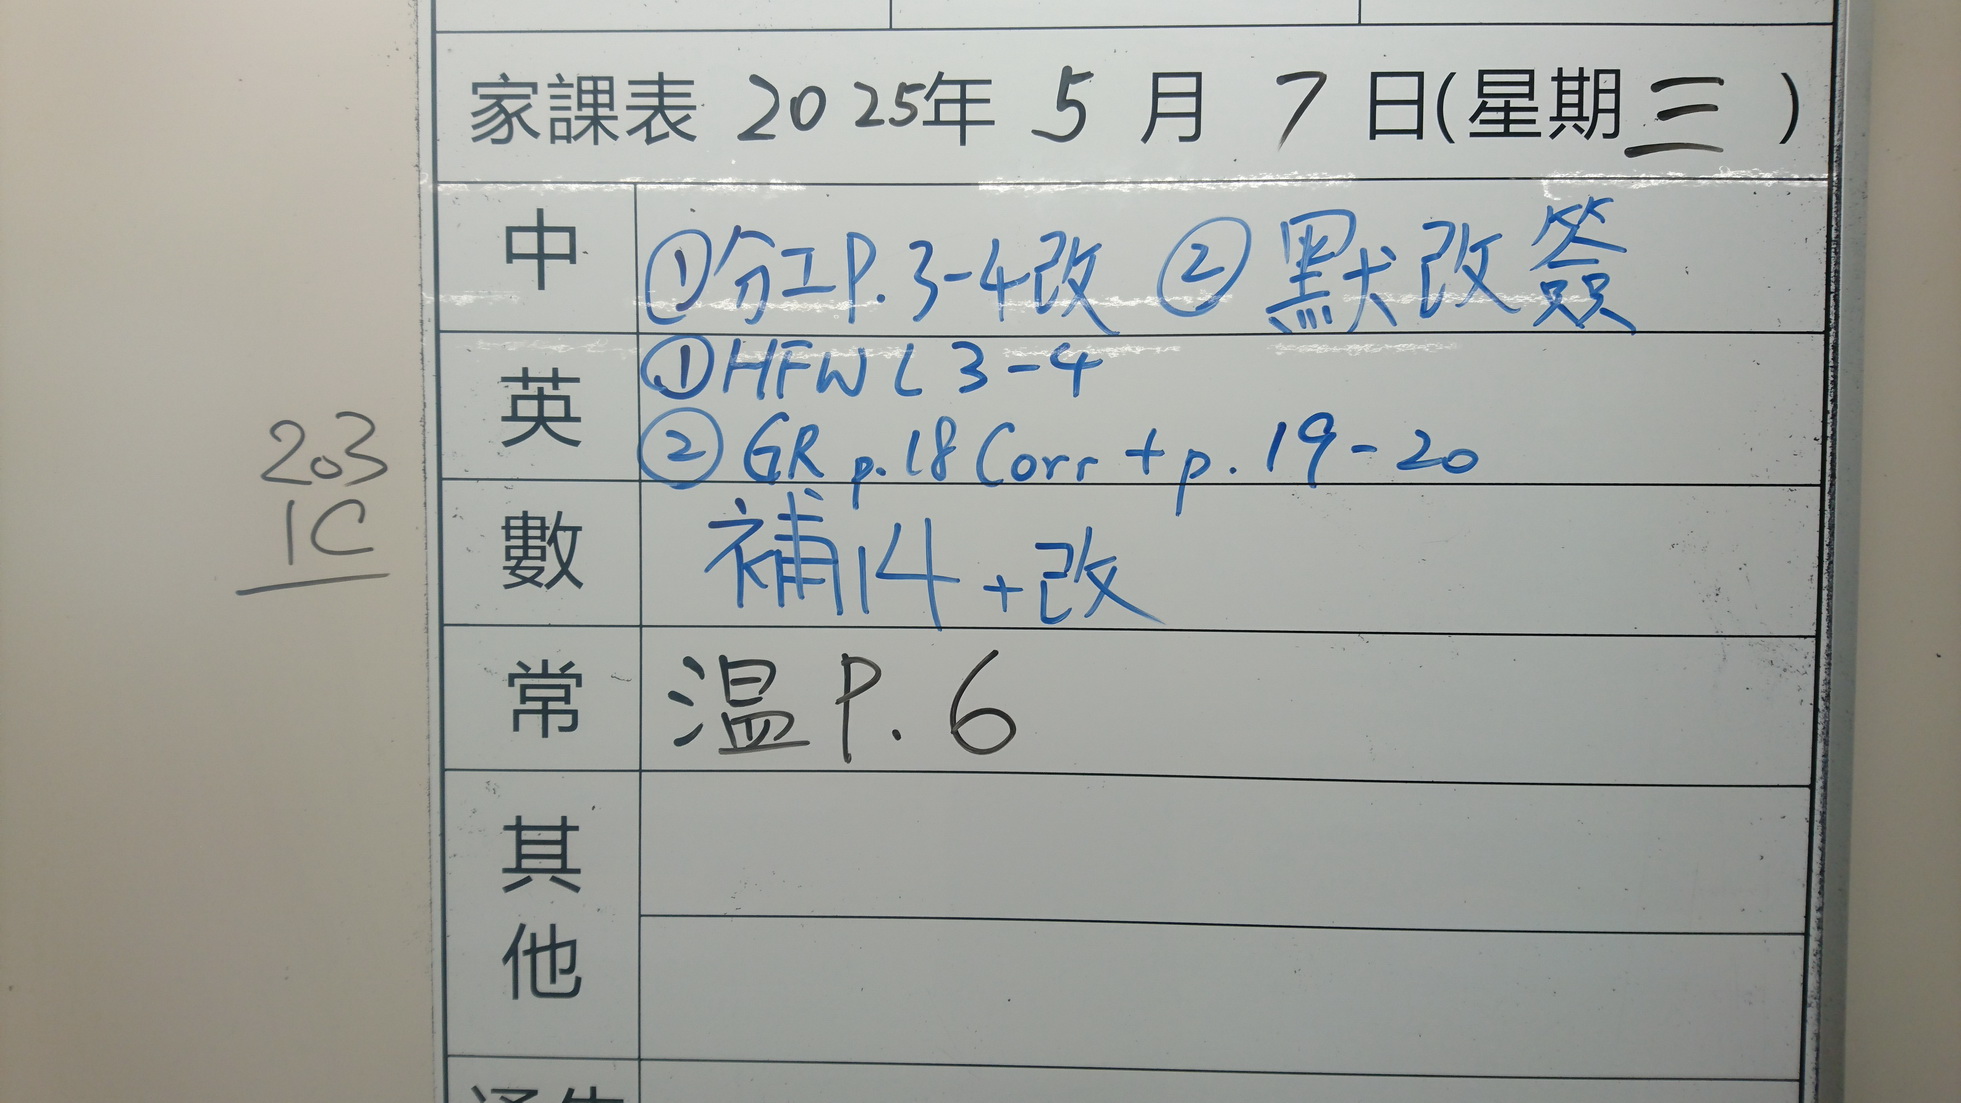 家課表 2025年 5 月 7 日(星期三)
中
①分工P.3-4改 ②默改簽
英
①HFW L 3-4
②GR p.18 Corr + p.19-20
203
1C
數
補14+改
常
温P.6
其他